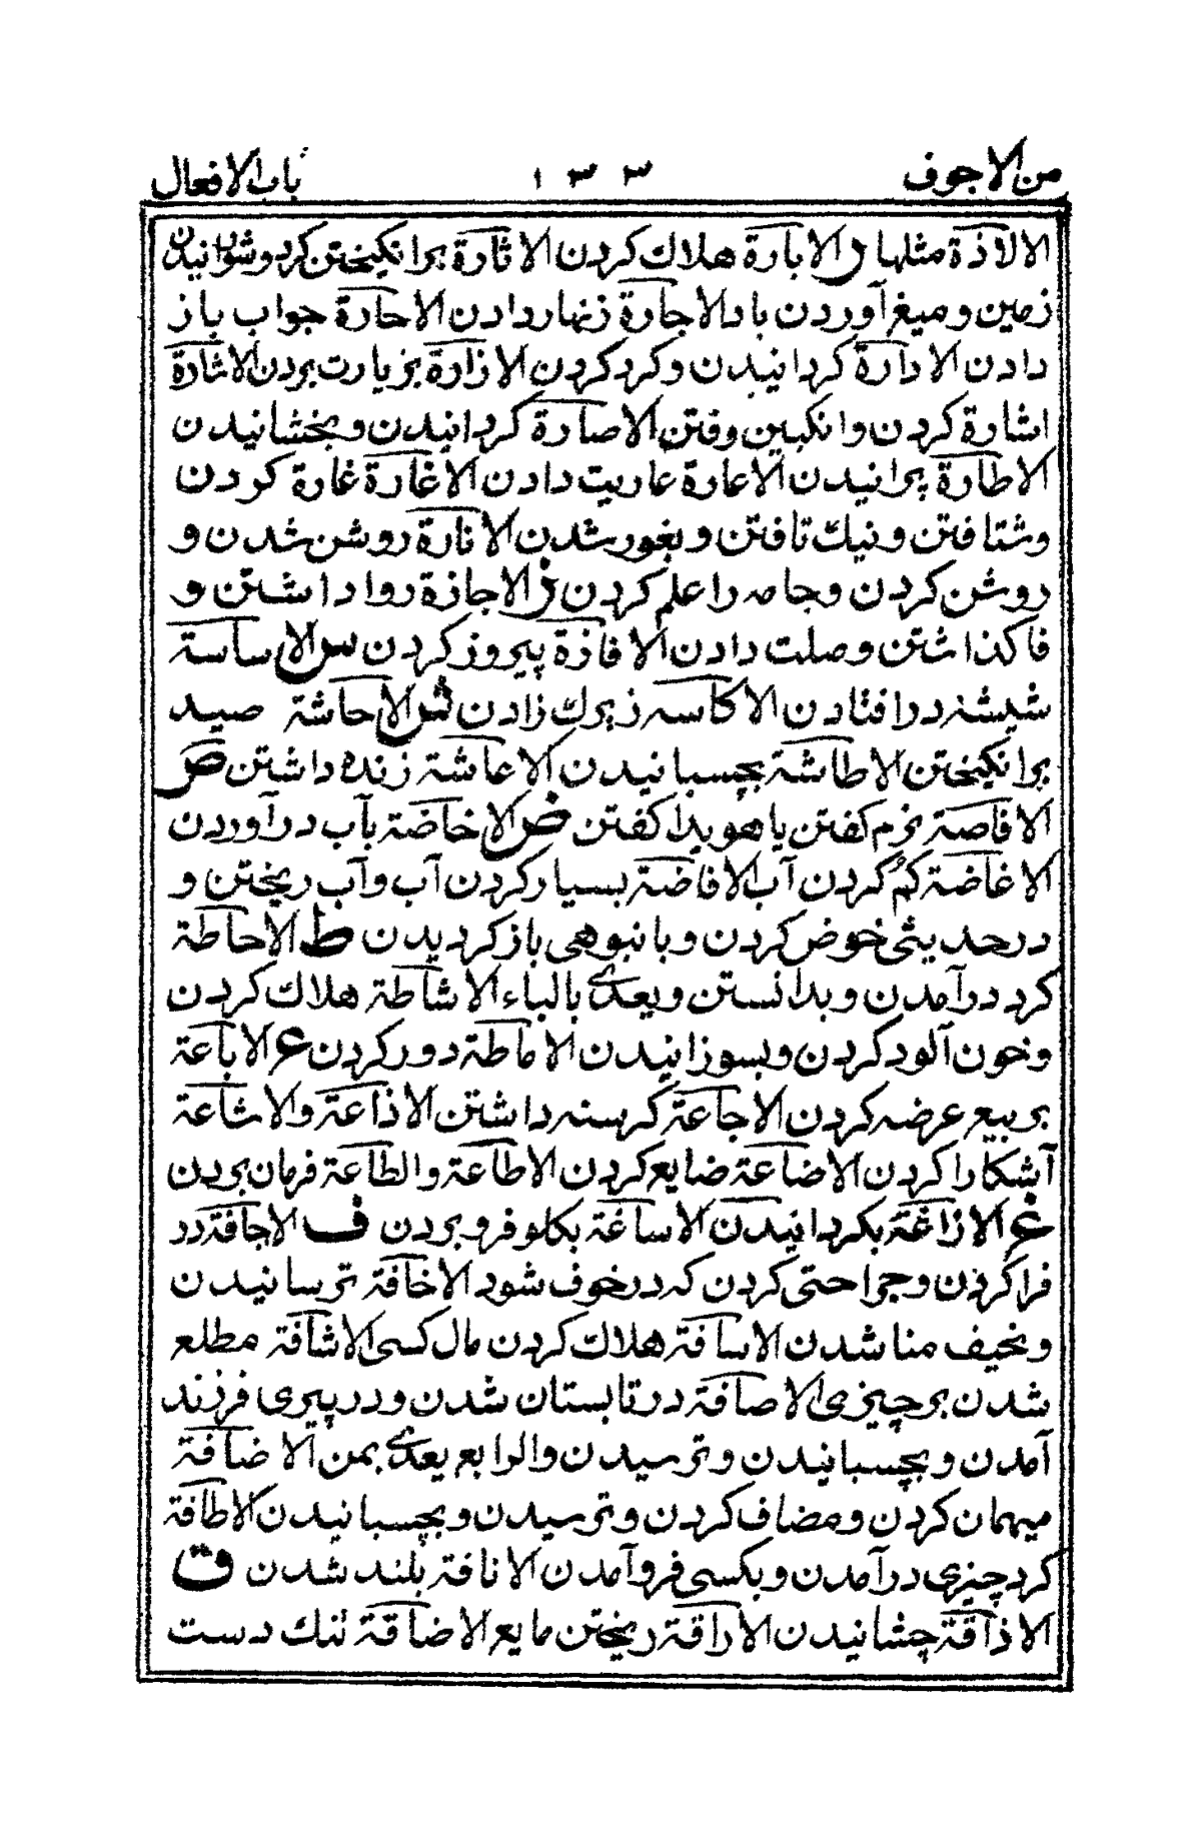 من الاجوف ١٣٣ باب الافعال
الالاذة مثلها ر الابارة هلاك كردن الاثارة برانكيختن كرد وشورانيدن
زمين وميغ آوردن باد الاجارة زنهار دادن الاحارة جواب باز
دادن الادارة كردانيدن وكرد كردن الازارة بزيارت بردن الاشارة
اشارة كردن وانكبين رفتن الاصارة كردانيدن وبخشانيدن
الاطارة پرانيدن الاعارة عاريت دادن الاغارة غارة كردن
وشتافتن ونيك تافتن وبغور شدن الانارة روشن شدن و
روشن كردن وجامه را علم كردن ز الاجازة روا داشتن و
فاكذاشتن وصلت دادن الافازة پيروز كردن س الاساسة
شپشه در افتادن الاكاسه زيرك زادن ش الاحاشة صيد
برانكيختن الاطاشة بچسبانيدن الاعاشة زنده داشتن ص
الافاصة نرم كفتن يا هويدا كفتن ض الاخاضة بآب درآوردن
الاغاضة كم كردن آب الافاضة بسيار كردن آب وآب ريختن و
در حديثى خوض كردن وبانبوهى باز كرديدن ط الاحاطة
كرد درآمدن وبدانستن ويعدى بالباء الاشاطة هلاك كردن
وخون آلود كردن وبسوزانيدن الاماطة دور كردن ع الاباعة
بر بيع عرضه كردن الاجاعة كرسنه داشتن الاذاعة والاشاعة
آشكارا كردن الاضاعة ضايع كردن الاطاعة والطاعة فرمان بردن
غ الازاغة بكردانيدن الاساغة بكلو فرو بردن ف الاجافة در
فرا كردن وجراحتى كردن كه در جوف شود الاخافة ترسانيدن
ونحيف منا شدن الاسافة هلاك كردن مال كسى الاشافة مطلع
شدن بر چيزى الاصافة در تابستان شدن ودر پيرى فرزند
آمدن وبچسبانيدن وترسيدن والرابع يعدى بمن الاضافة
ميهمان كردن ومضاف كردن وترسيدن وبچسبانيدن الاطافة
كرد چيزى درآمدن وبكسى فروآمدن الانافة بلند شدن ق
الاذاقة چشانيدن الاراقة ريختن مايع الاضاقة تنك دست